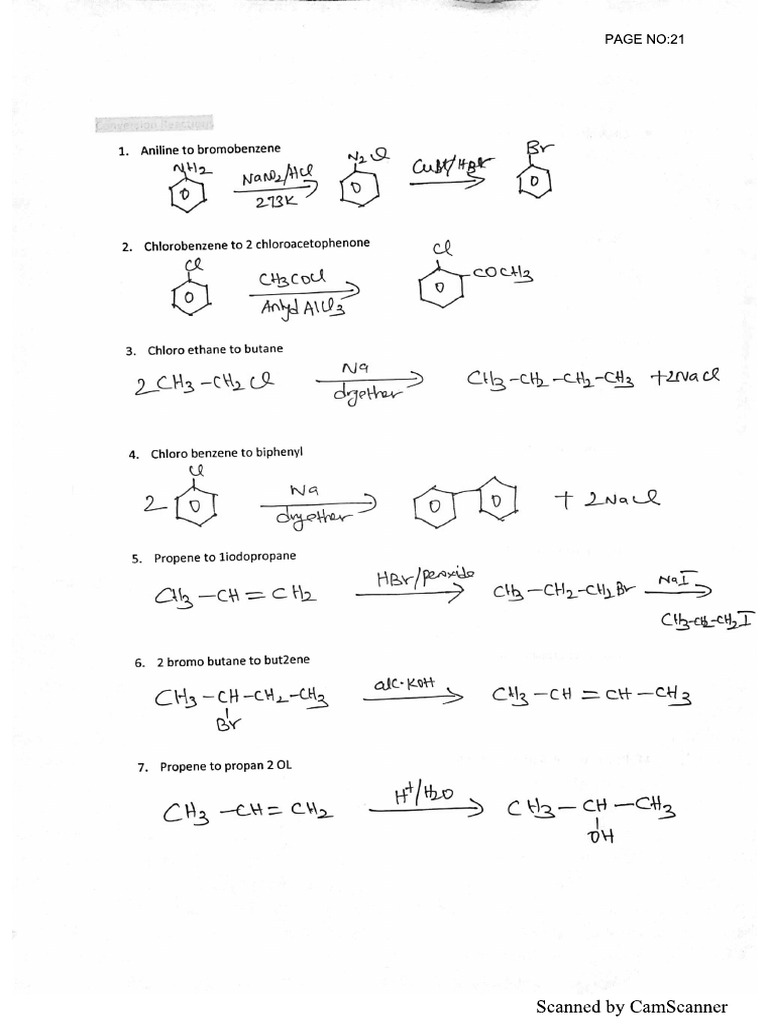 PAGE NO:21
Conversion Reactions
1. Aniline to bromobenzene
NH2 NaNO2/HCl 273K N2Cl CuBr/HBr Br
2. Chlorobenzene to 2 chloroacetophenone
Cl CH3COCl Anhyd AlCl3 Cl COCH3
3. Chloro ethane to butane
2 CH3-CH2Cl Na dryether CH3-CH2-CH2-CH3 +2NaCl
4. Chloro benzene to biphenyl
2 Cl Na dryether + 2NaCl
5. Propene to 1iodopropane
CH3-CH=CH2 HBr/peroxide CH3-CH2-CH2Br NaI
CH3-CH2-CH2I
6. 2 bromo butane to but2ene
CH3-CH-CH2-CH3 alc.KOH CH3-CH=CH-CH3
Br
7. Propene to propan 2 OL
CH3-CH=CH2 H+/H2O CH3-CH-CH3
OH
Scanned by CamScanner